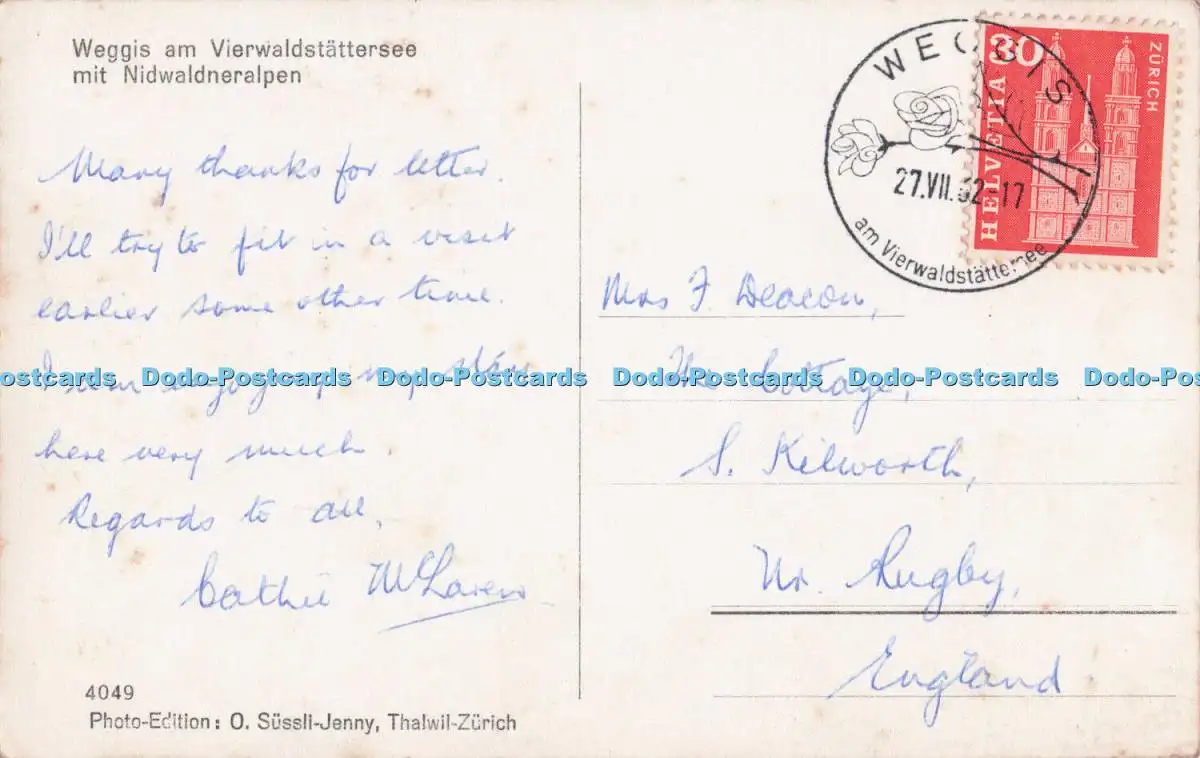 Weggis am Vierwaldstättersee
mit Nidwaldneralpen
Many thanks for letter.
I'll try to fit in a visit
earlier some other time.
I my stay
here very much.
Regards to all,
Cathie McLaren
4049
Photo-Edition: O. Süssli-Jenny, Thalwil-Zürich
WEGGIS
27.VII.62-17
am Vierwaldstättersee
30
HELVETIA
ZÜRICH
Mrs F Deacon,
The Cottage,
S. Kilworth,
Nr. Rugby,
England
ostcards Dodo-Postcards Dodo-Postcards Dodo-Postcards Dodo-Postcards Dodo-Post